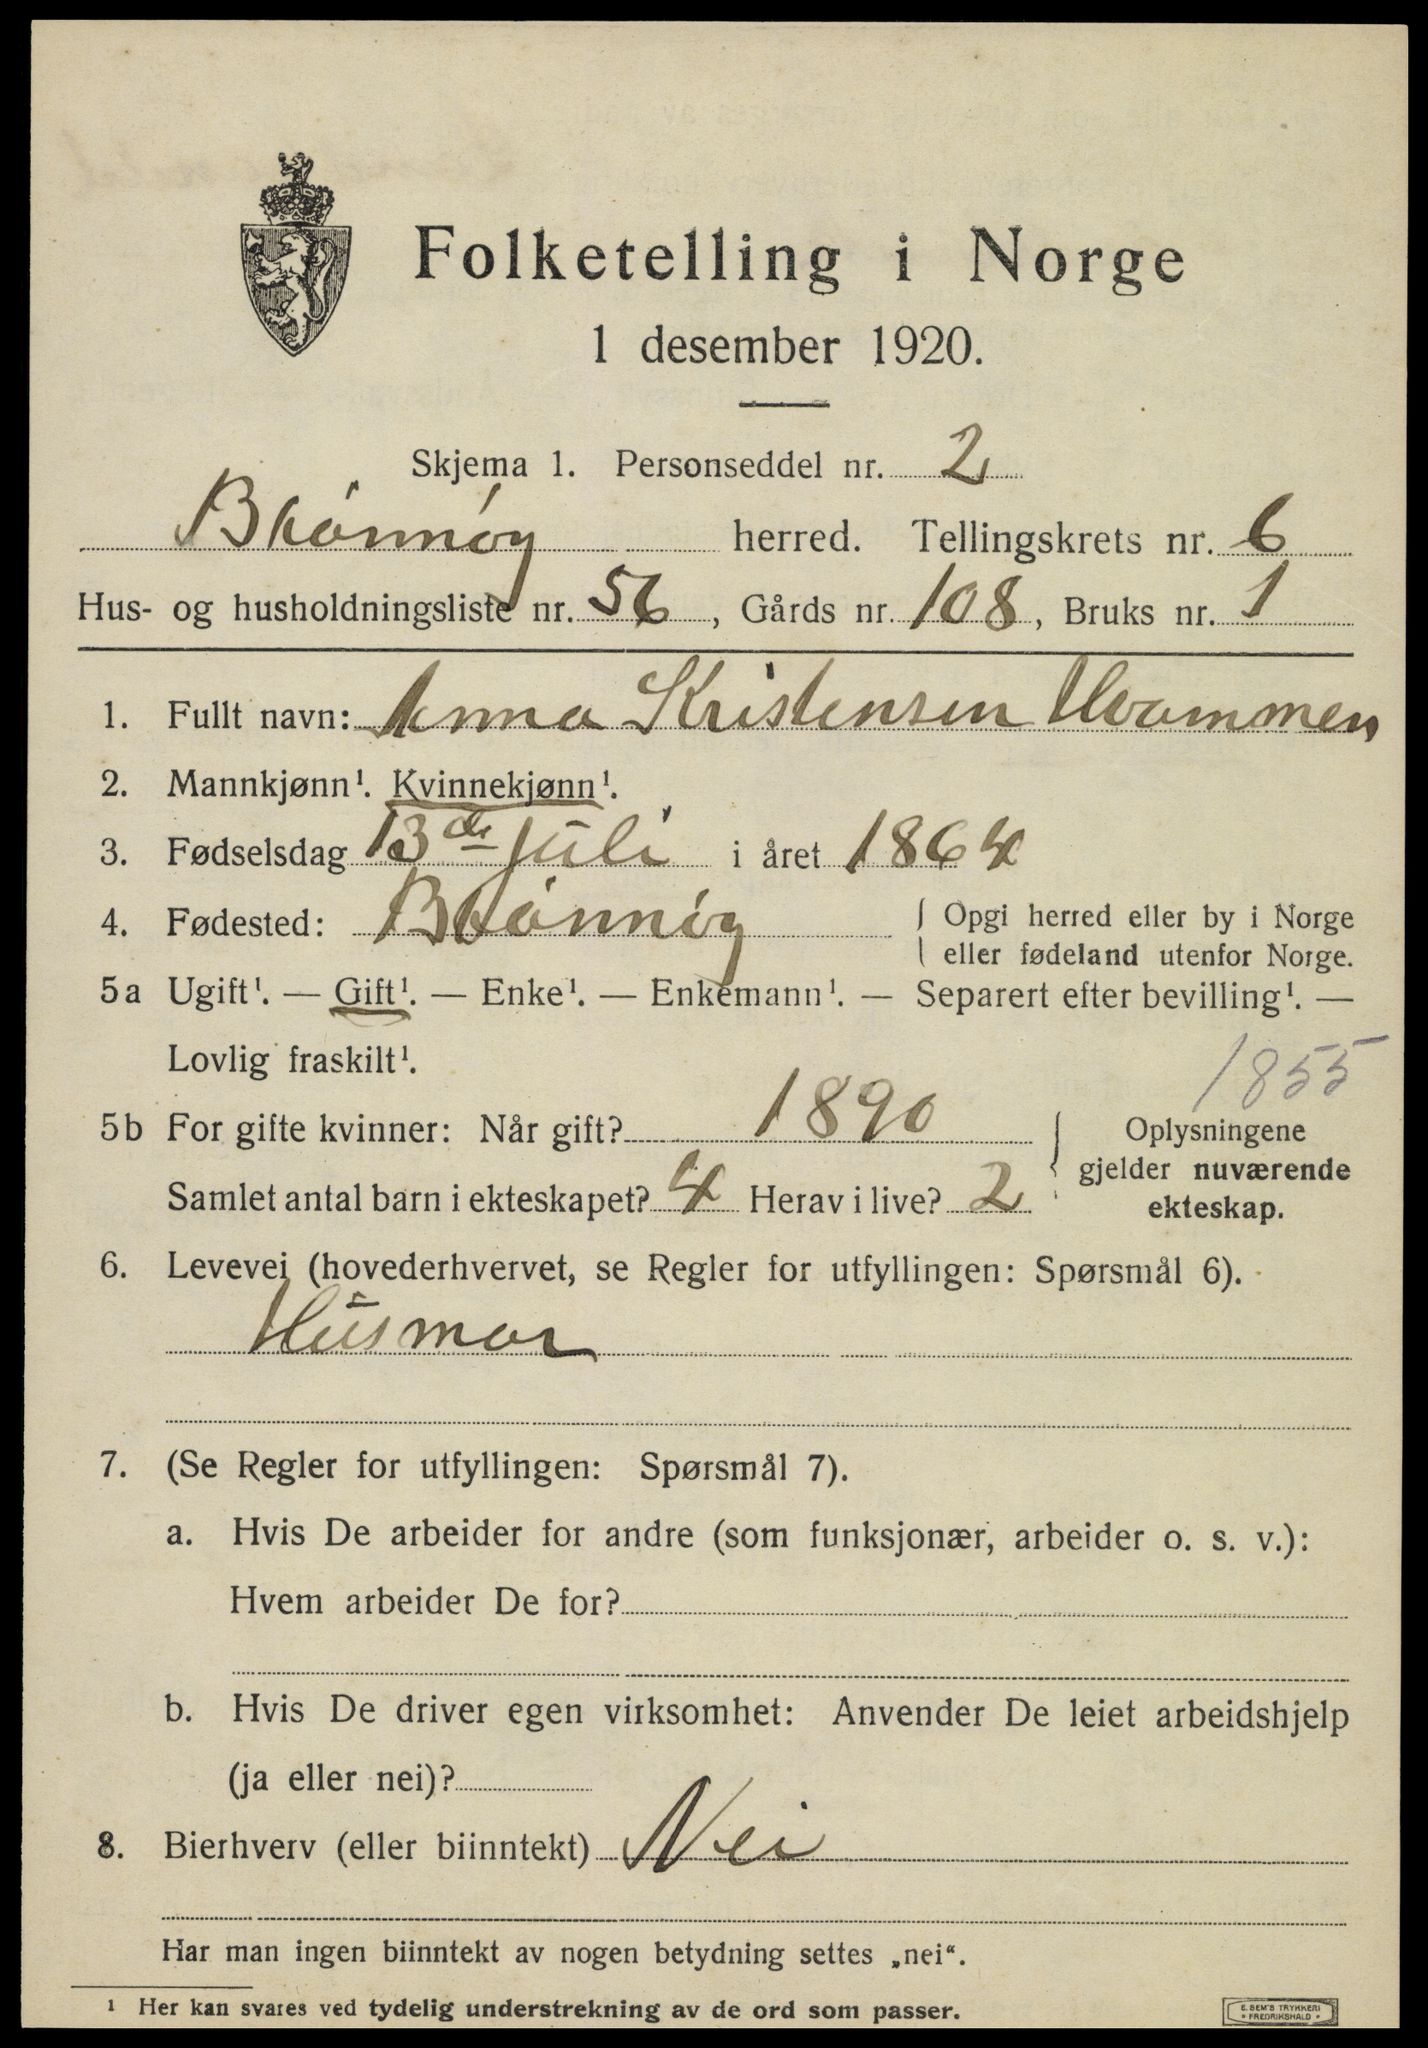 Folketelling i Norge
1 desember 1920.
Skjema 1. Personseddel nr. 2
Brönnöy herred. Tellingskrets nr. 6
Hus- og husholdningsliste nr. 56, Gårds nr. 108, Bruks nr. 1
1. Fullt navn: Anna Kristensen Hvammen
2. Mannkjønn¹. Kvinnekjønn¹.
3. Fødselsdag 13de juli i året 1864
4. Fødested: Brönnöy { Opgi herred eller by i Norge
eller fødeland utenfor Norge.
5a Ugift¹. — Gift¹. — Enke¹. — Enkemann¹. — Separert efter bevilling¹. —
Lovlig fraskilt¹.
1855
5b For gifte kvinner: Når gift? 1890
Samlet antal barn i ekteskapet? 4 Herav i live? 2
} Oplysningene
gjelder nuværende
ekteskap.
6. Levevei (hovederhvervet, se Regler for utfyllingen: Spørsmål 6).
Husmor
7. (Se Regler for utfyllingen: Spørsmål 7).
a. Hvis De arbeider for andre (som funksjonær, arbeider o. s. v.):
Hvem arbeider De for?
b. Hvis De driver egen virksomhet: Anvender De leiet arbeidshjelp
(ja eller nei)?
8. Bierhverv (eller biinntekt) Nei
Har man ingen biinntekt av nogen betydning settes „nei“.
¹ Her kan svares ved tydelig understrekning av de ord som passer.
E. SEM'S TRYKKERI
* FREDRIKSHALD *